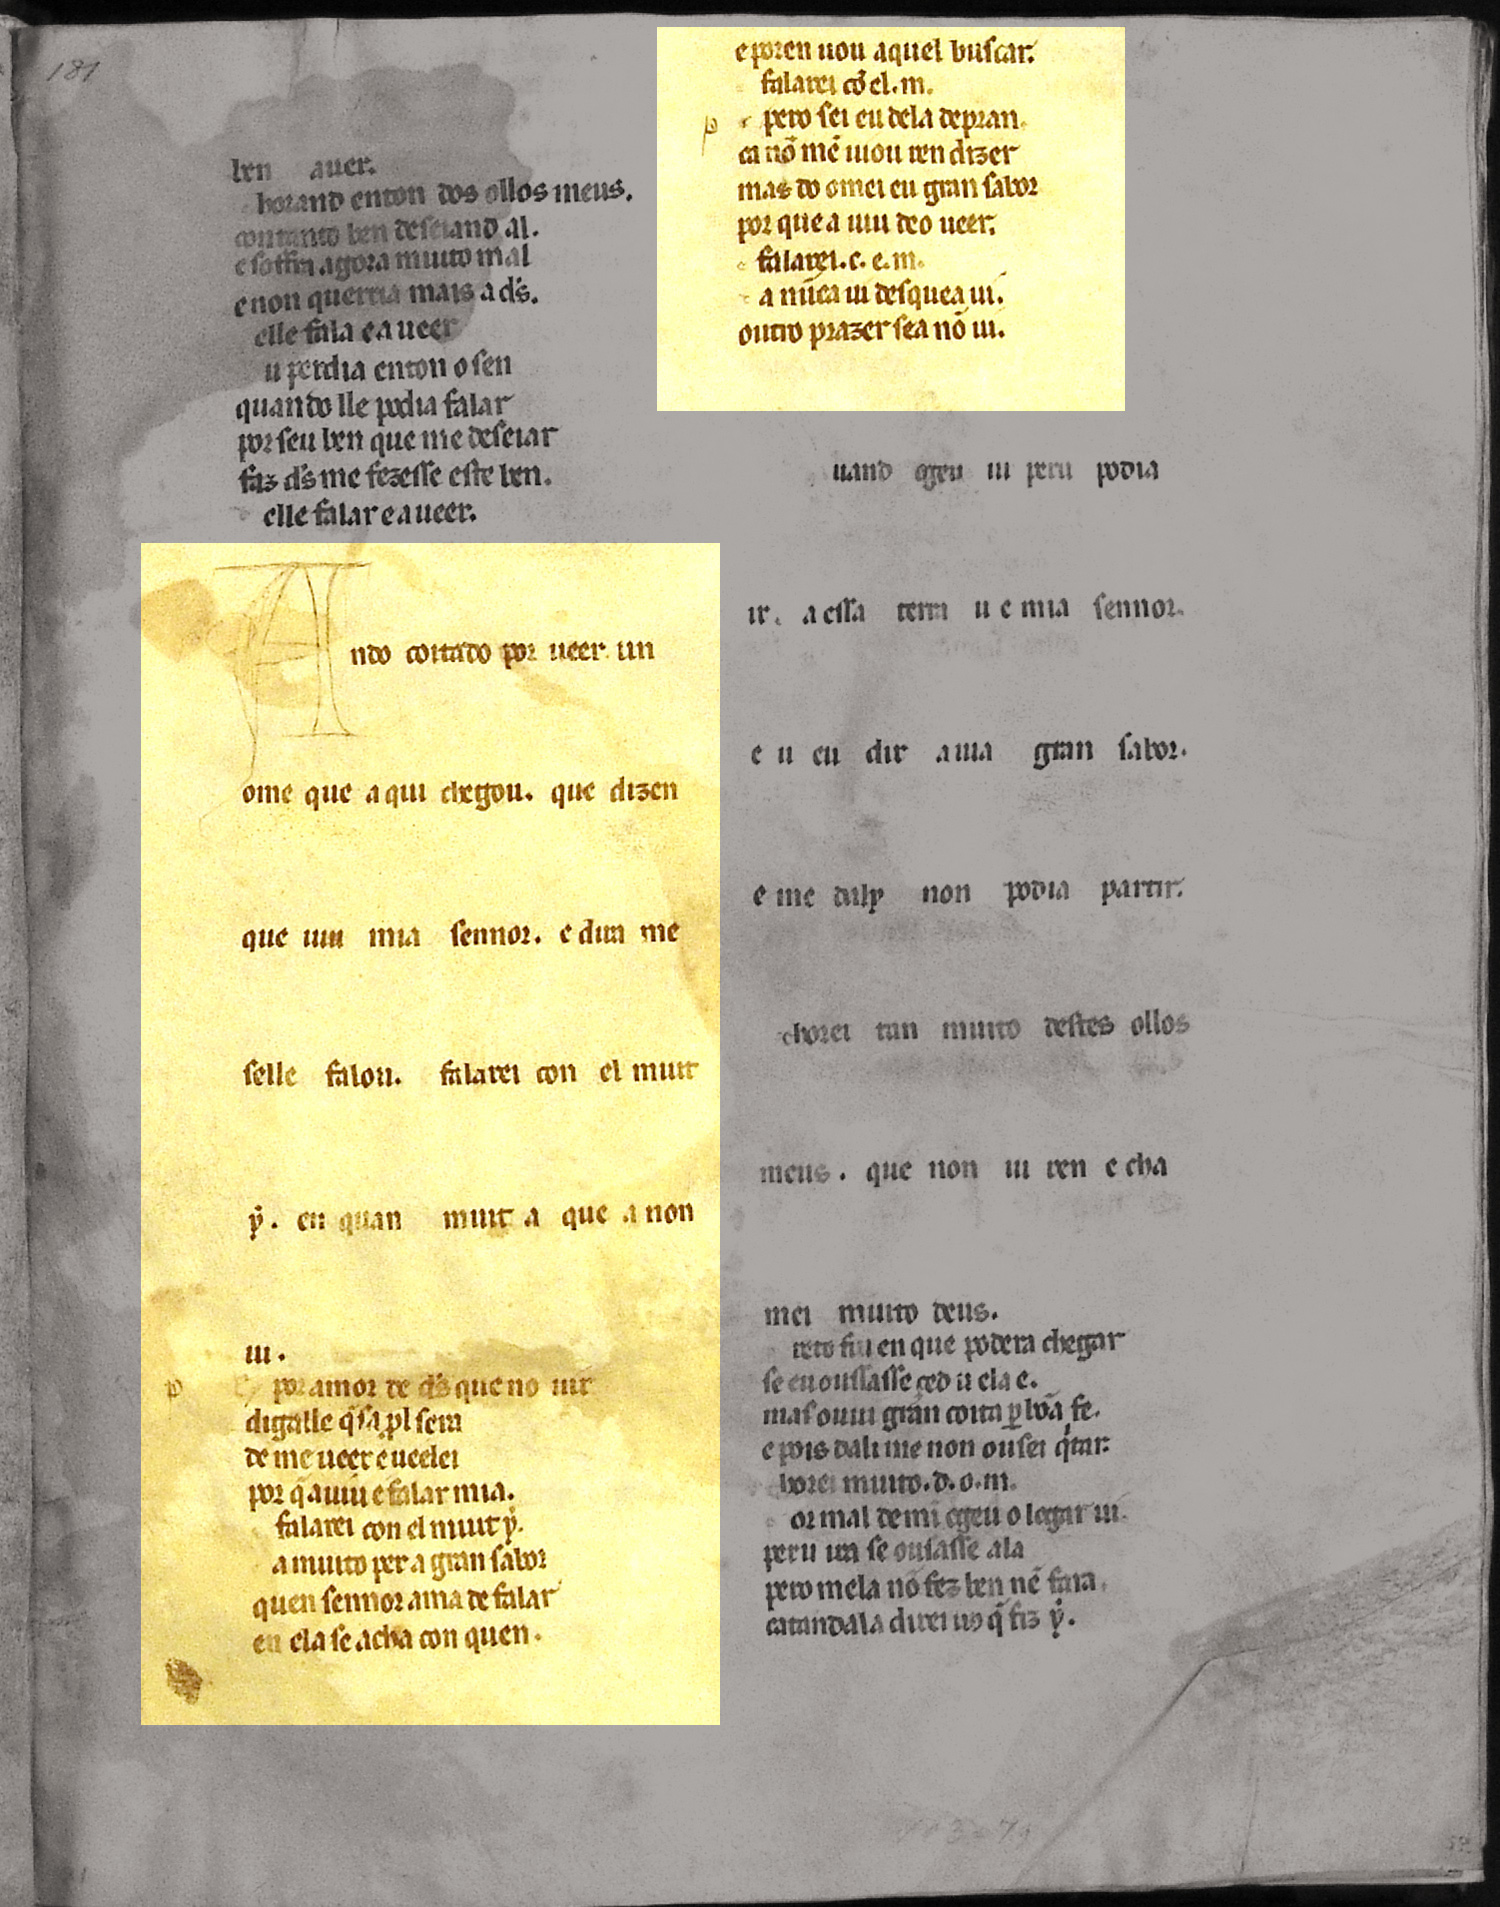 181
ben auer.
horand enton dos ollos meus.
con tanto ben deseiand al.
e soffrin agora muito mal
e non querria mais a d̃s.
elle fala e a ueer
u perdia enton o sen
quando lle podia falar
por seu ben que me deseiar
faz d̃s me fezesse este ben.
elle falar e a ueer.
A
ndo coitado por ueer un
ome que aqui chegou. que dizen
que uiu mia sennor. e dira me
selle falou. falarei con el muit
ẏ. en quan muit a que a non
ui.
p por amor de d̃s que no uir
digalle q̃
de me ueer e ueelei
por q̃ a uiu e falar mia.
falarei con el muit ẏ.
a muito per a gran sabor
quen sennor ama de falar
en ela se acha con quen.
e poren uou aquel buscar.
falarei cõ el. m.
p pero sei eu dela de pran
ca nõ mẽ uiou ren dizer
mas do omei eu gran sabor
por que a uiu deo ueer.
falarei. c. e. m.
a nũca ui des que a ui.
outro prazer se a nõ ui.
uand ogeu ui peru podia
ir. a essa terra u e mia sennor.
e u eu dir auia gran sabor.
e me daly non podia partir.
chorei tan muito destes ollos
meus. que non ui ren e cha
mei muito deus.
reto fui en que podera chegar
se eu oussasse ced u ela e.
mas ouui gran coita ꝑ bõa fe.
e pois dali me non ousei q̇tar.
horei muito. d. o. m.
or mal de mi ogeu o logar ui.
peru ira se ousasse ala
pero mela nõ fez ben nẽ fara.
catandala direi uꝯ q̃ fiz ẏ.